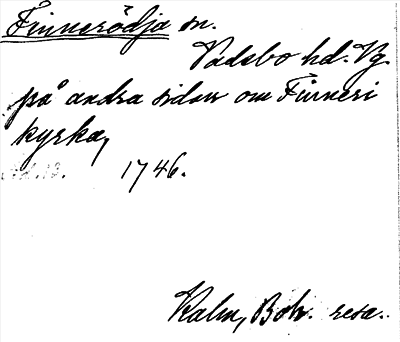 Finnerödja sn.
Vadsbo hd. Vg.
på andra sidan om Finneri
kyrka,
1746.
Kalm, Boh. resa.